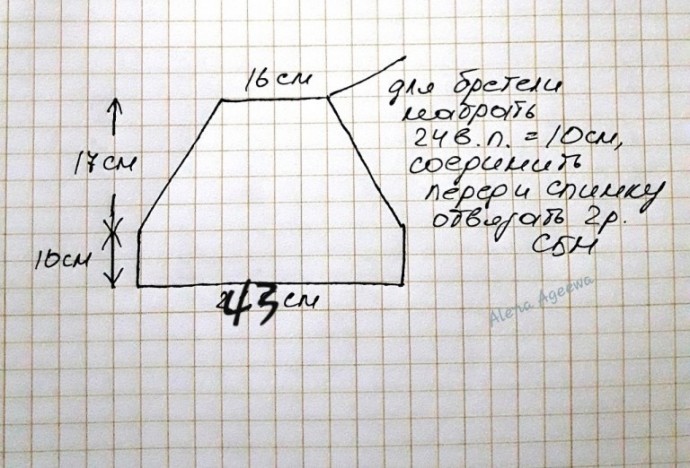 16 см
для бретели
набрать
24 в.п. = 10см,
соединить
перед и спинку
отвязать 2р.
СБН
17 см
10 см
43 см
Alena Ageewa